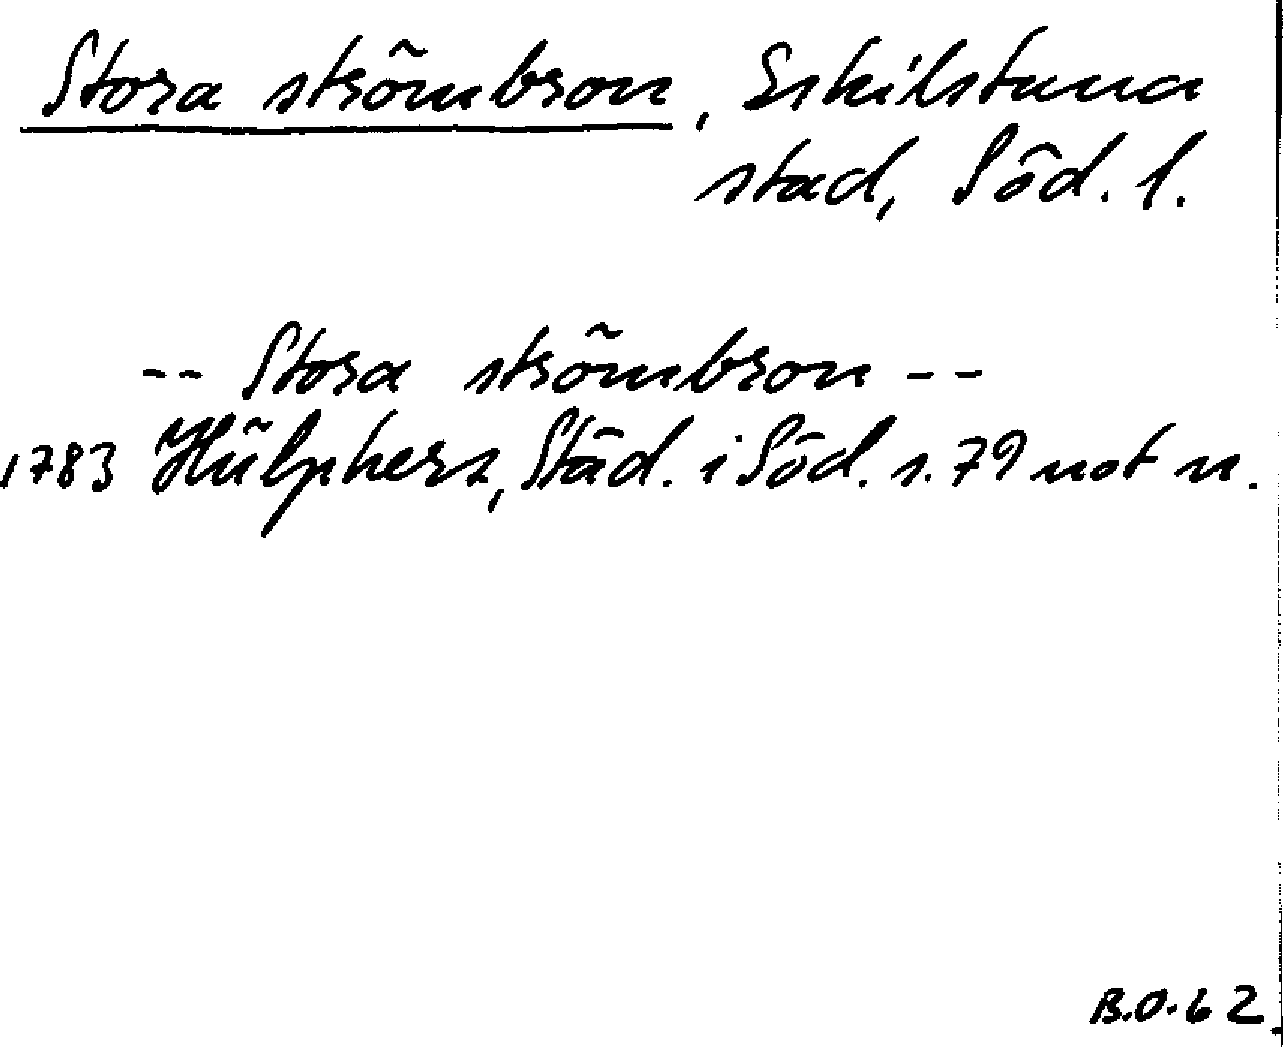 Stora strömbron, Eskilstuna
stad, Söd. l.
-- Stora strömbron --
1783 Hülphers, Städ. i Söd. s. 79 not n.
B.O. 62